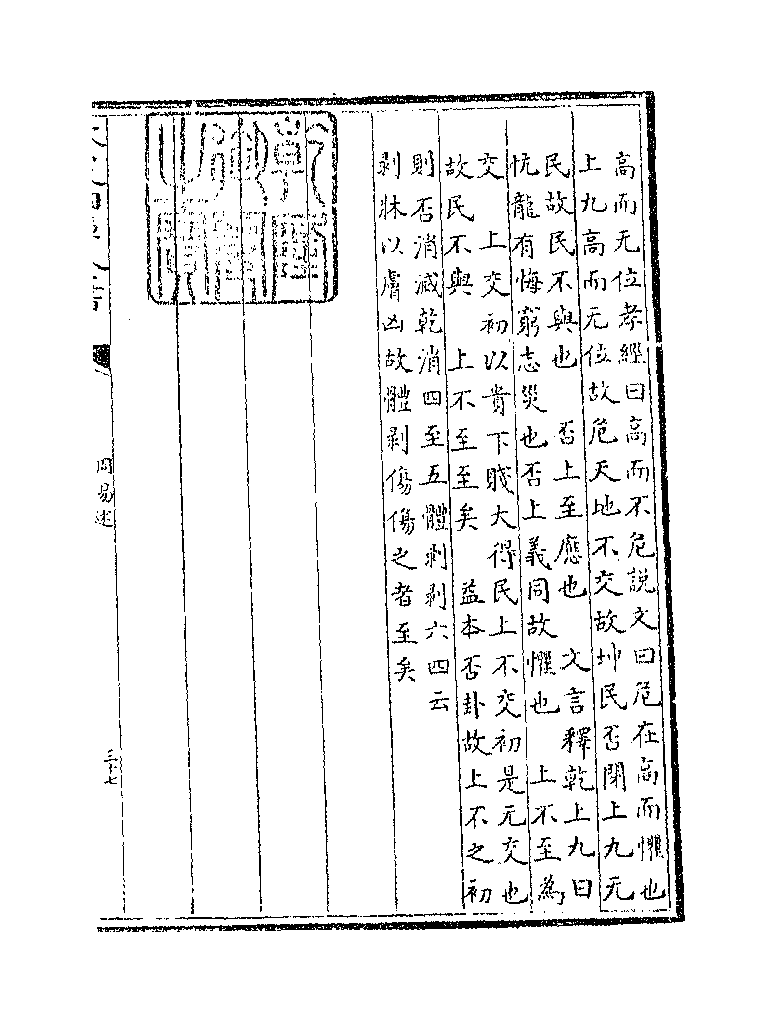 高而无位孝經曰高而不危説文曰危在高而懼也
上九高而无位故危天地不交故坤民否閉上九无
民故民不與也　否上至應也　文言釋乾上九曰
忼龍有悔窮志災也否上義同故懼也　上不至為
交　上交初以貴下賤大得民上不交初是无交也
故民不與　上不至至矣　益本否卦故上不之初
則否消滅乾消四至五體剥剥六四云
剥牀以膚凶故體剥傷傷之者至矣
周易述
三十七